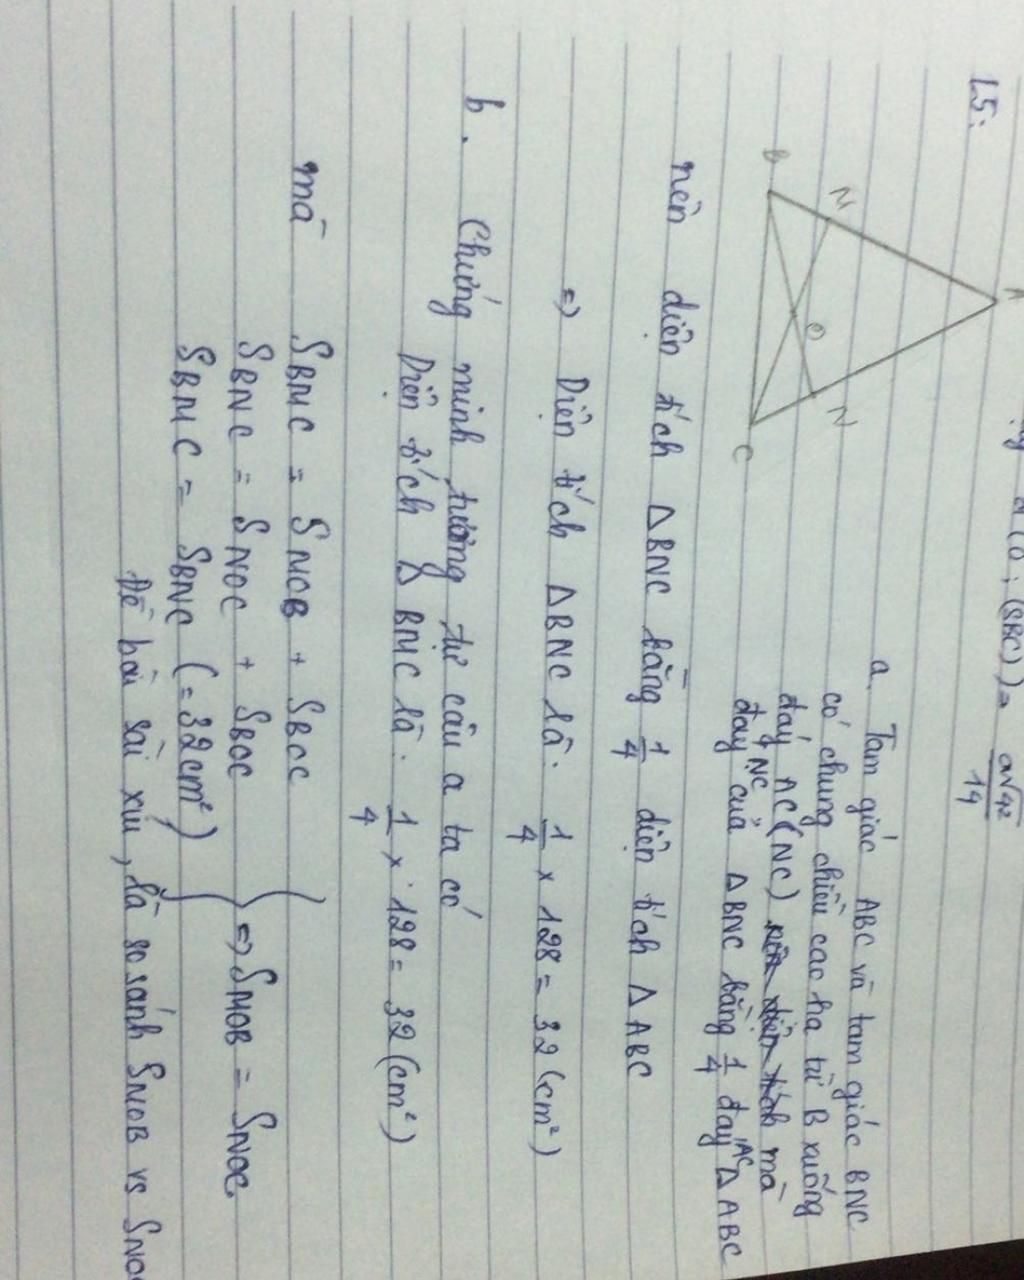 L5:
(SBC)) = a√42/14
A
M
N
O
B
C
a. Tam giác ABC và tam giác BNC
có chung chiều cao hạ từ B xuống
đáy AC (NC) nên diện tích mà
đáy NC của △BNC bằng 1/4 đáy AC △ABC
nên diện tích △BNC bằng 1/4 diện tích △ABC
=> Diện tích △BNC là: 1/4 × 128 = 32 (cm²)
b. Chứng minh tương tự câu a ta có
Diện tích △ BMC là: 1/4 × 128 = 32 (cm²)
mà SBMC = SMOB + SBOC
SBNC = SNOC + SBOC
SBMC = SBNC (= 32cm²) } => SMOB = SNOC
Đề bài sai xíu, là so sánh SMOB vs SNOC